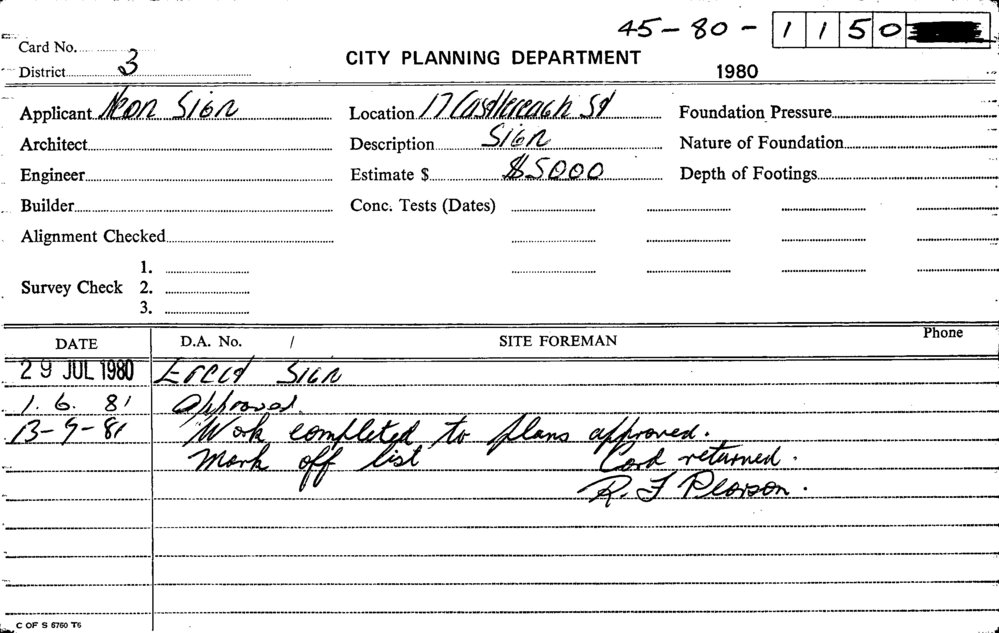 45-80-1150
Card No.
CITY PLANNING DEPARTMENT
District 3
1980
Applicant Neon Sign Location 17 Castlereagh St Foundation Pressure
Architect Description Sign Nature of Foundation
Engineer Estimate $ $5000 Depth of Footings
Builder Conc. Tests (Dates)
Alignment Checked
1.
Survey Check 2.
3.
DATE D.A. No. / SITE FOREMAN Phone
29 JUL 1980 Erect Sign
1. 6. 81 Approved.
13-9-81 Work completed to plans approved.
Mark off list Card returned.
R. J Pearson.
C OF S 6760 T6